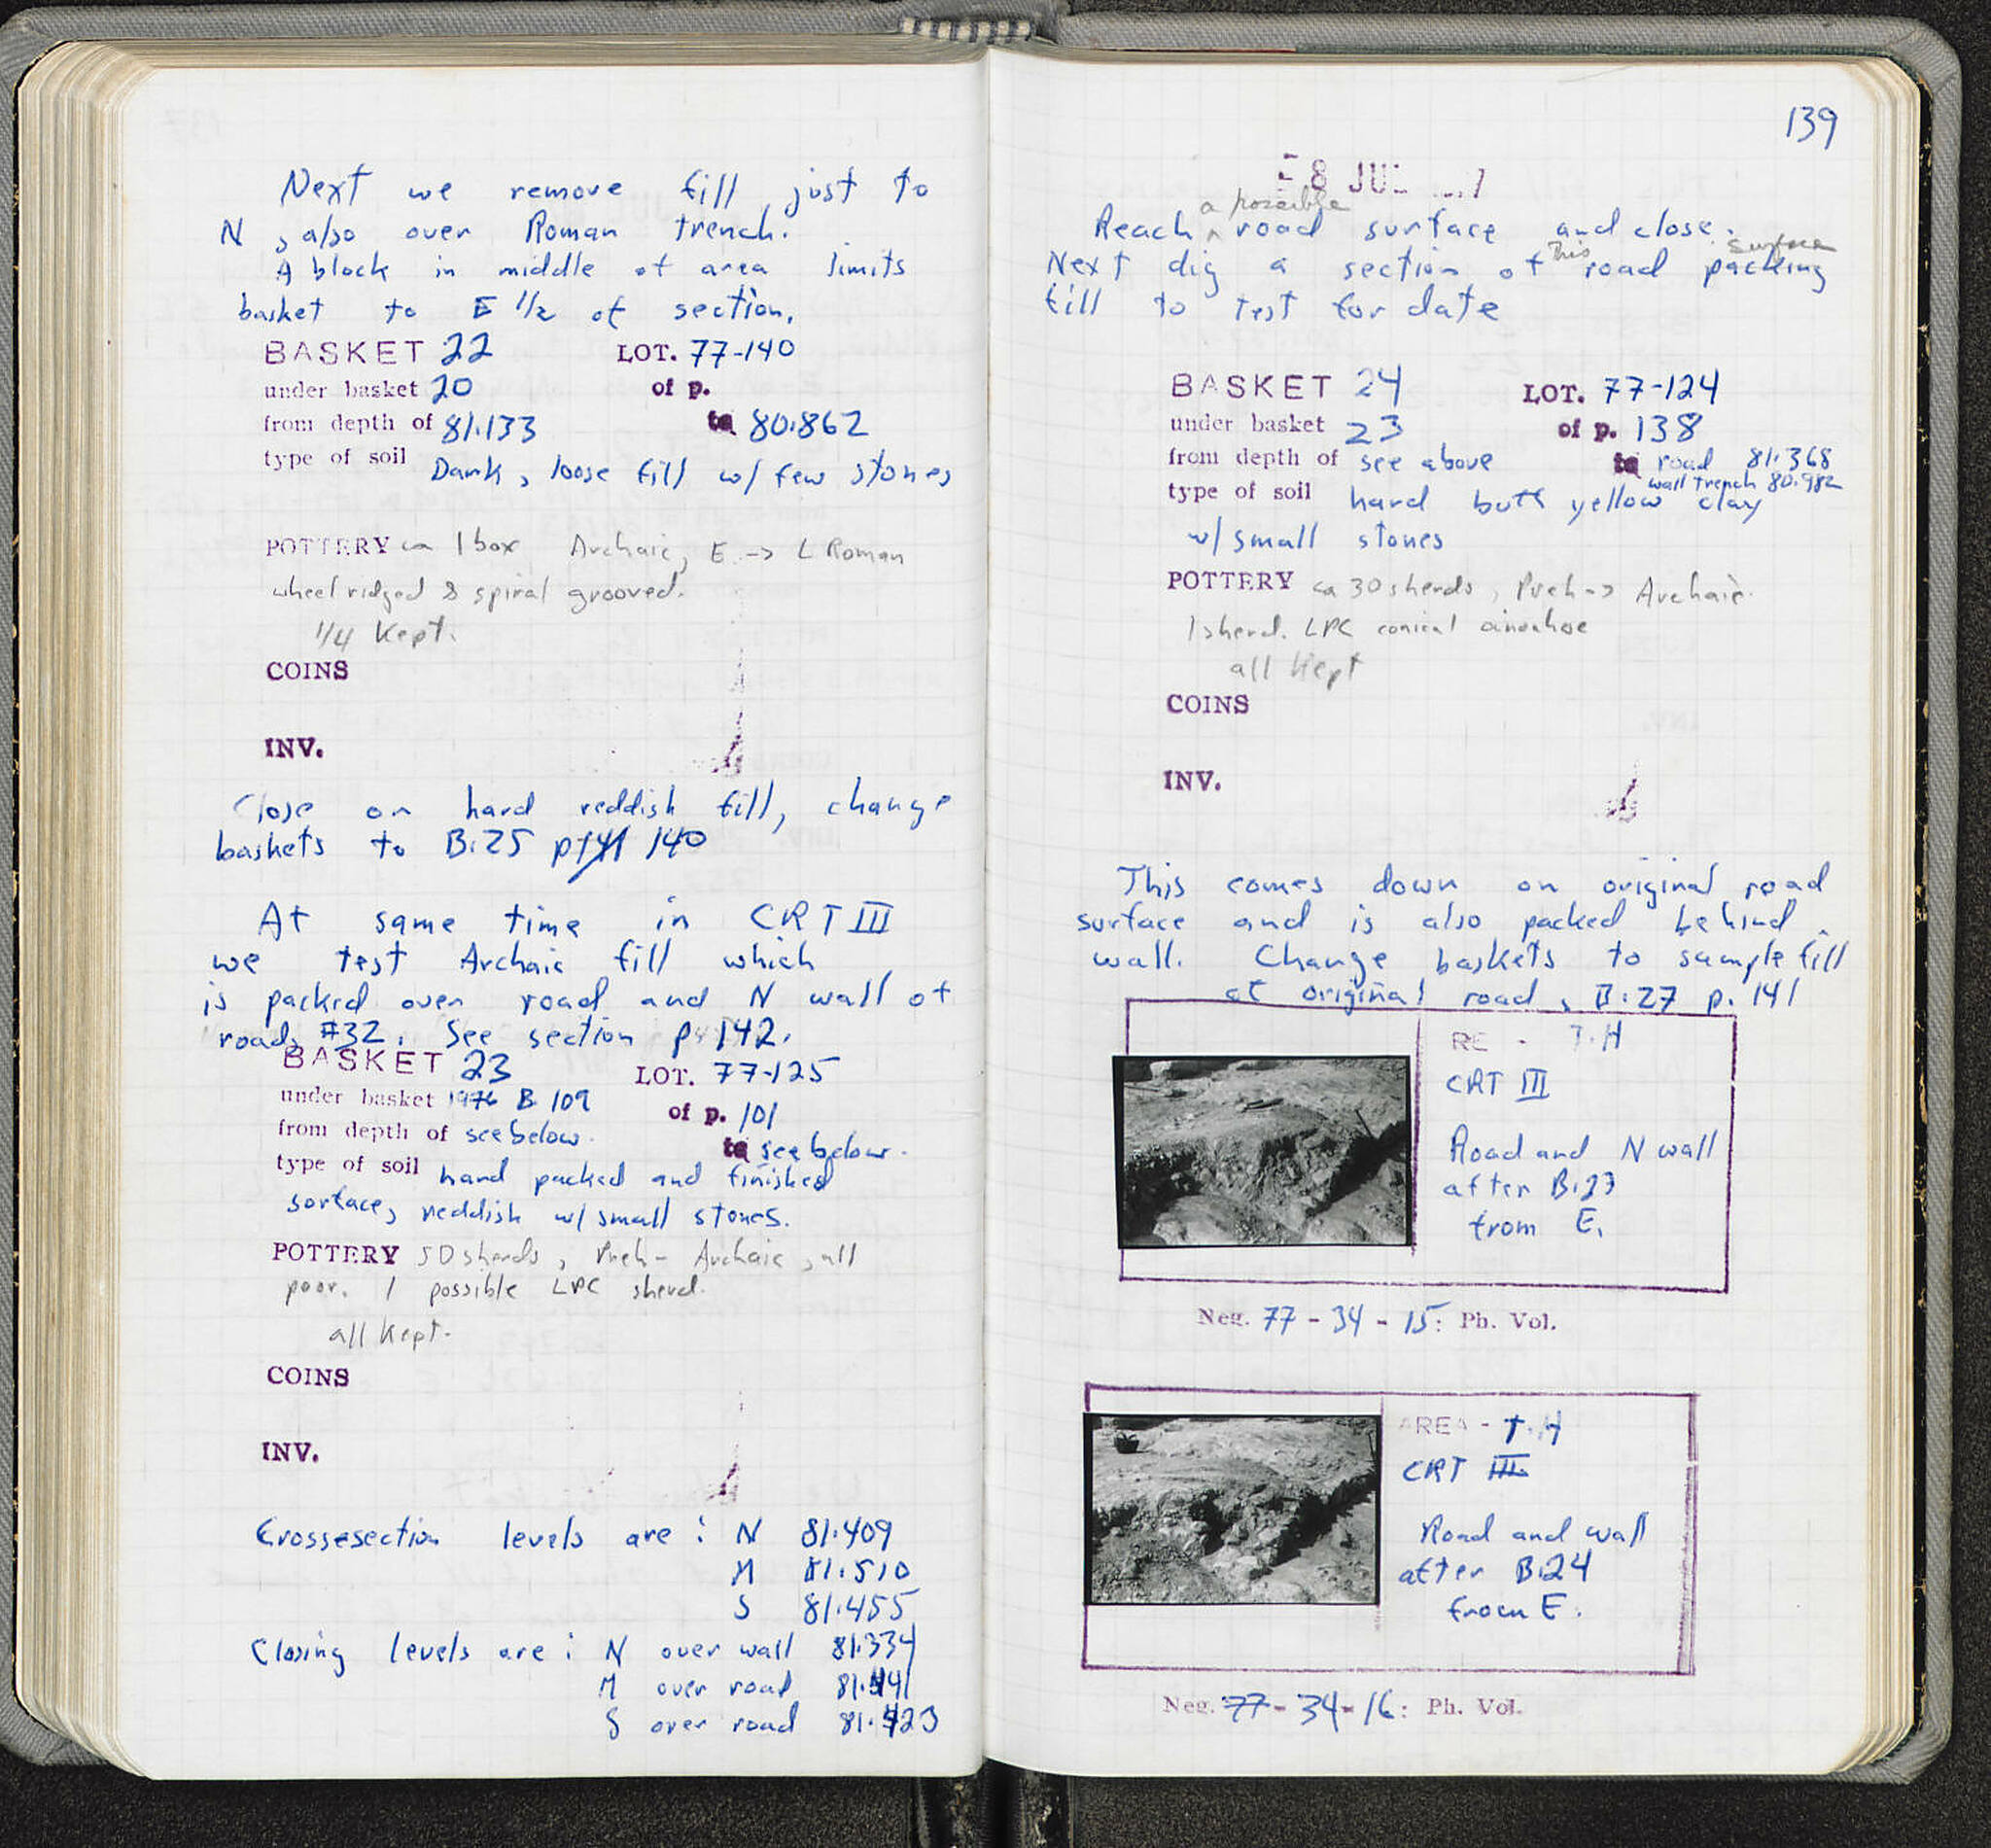 Next we remove fill just to
N, also over Roman trench.
A block in middle of area limits
basket to E 1/2 of section.
BASKET 22 LOT. 77-140
under basket 20 of p.
from depth of 81.133 to 80.862
type of soil Dark, loose fill w/ few stones
POTTERY ca 1 box Archaic, E -> L Roman
wheel ridged & spiral grooved.
1/4 Kept.
COINS
INV.
Close on hard reddish fill, change
baskets to B:25 p 141 140
At same time in CRT III
we test Archaic fill which
is packed over road and N wall of
road, #32. See section p 142.
BASKET 23 LOT. 77-125
under basket 1976 B 109 of p. 101
from depth of see below. to see below.
type of soil hard packed and finished
surface, reddish w/ small stones.
POTTERY 50 sherds, Preh - Archaic, all
poor. 1 possible LPC sherd.
all Kept.
COINS
INV.
Crossesection levels are: N 81.409
M 81.510
S 81.455
Closing levels are: N over wall 81.334
M over road 81.441
S over road 81.423
139
8 JUL
Reach a possible road surface and close.
Next dig a section of this road surface packing
fill to test for date
BASKET 24 LOT. 77-124
under basket 23 of p. 138
from depth of see above to road 81.368
wall trench 80.982
type of soil hard buff yellow clay
w/ small stones
POTTERY ca 30 sherds, Preh -> Archaic.
1 sherd. LPC conical oinochoe
all Kept
COINS
INV.
This comes down on original road
surface and is also packed behind
wall. Change baskets to sample fill
of original road, B:27 p. 141
RE - T.H
CRT III
Road and N wall
after B:23
from E.
Neg. 77 - 34 - 15: Ph. Vol.
AREA - T.H
CRT III
Road and wall
after B:24
from E.
Neg. 77 - 34 - 16: Ph. Vol.